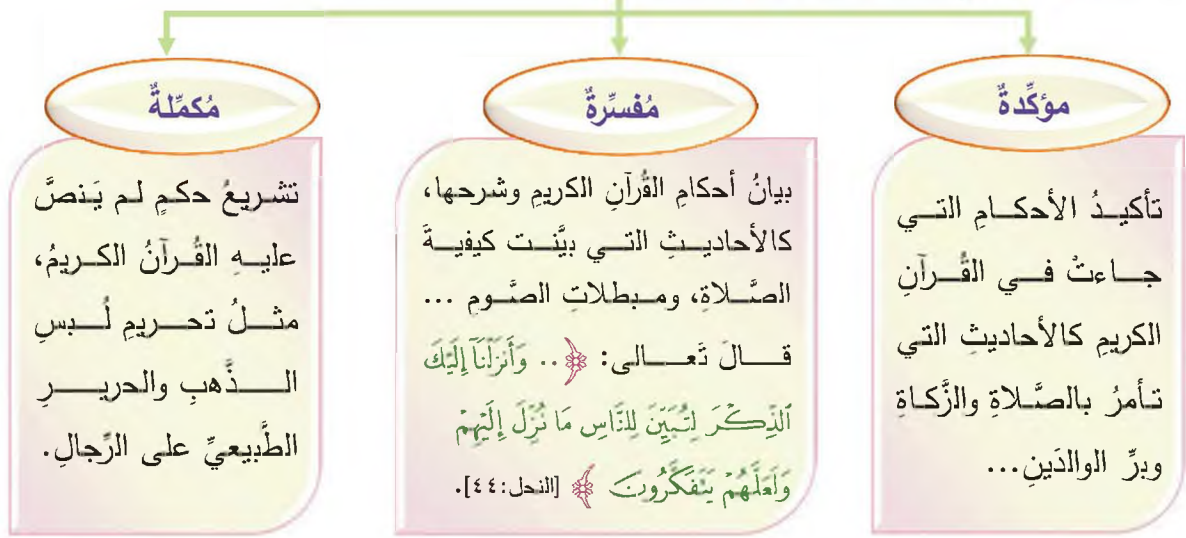 مؤكِّدةٌ
تأكيــدُ الأحكــامِ التــي
جــاءتْ فــي القُــرآنِ
الكريمِ كالأحاديثِ التي
تأمرُ بالصَّلاةِ والزَّكاةِ
وبرِّ الوالدَينِ...
مُفسِّرةٌ
بيانُ أحكامِ القُرآنِ الكريمِ وشرحها،
كالأحاديــثِ التــي بيَّنــت كيفيــةَ
الصَّــلاةِ، ومــبطلاتِ الصَّــومِ ...
قــــالَ تَعــــالى: ﴿.. وَأَنزَلْنَآ إِلَيْكَ
ٱلذِّكْرَ لِتُبَيِّنَ لِلنَّاسِ مَا نُزِّلَ إِلَيْهِمْ
وَلَعَلَّهُمْ يَتَفَكَّرُونَ﴾ [النحل:٤٤].
مُكمِّلةٌ
تشريعُ حكمٍ لم يَنصَّ
عليــهِ القُــرآنُ الكــريمُ،
مثــلُ تحــريمِ لُــبسِ
الــــذَّهبِ والحريــــرِ
الطَّبيعيِّ على الرِّجالِ.